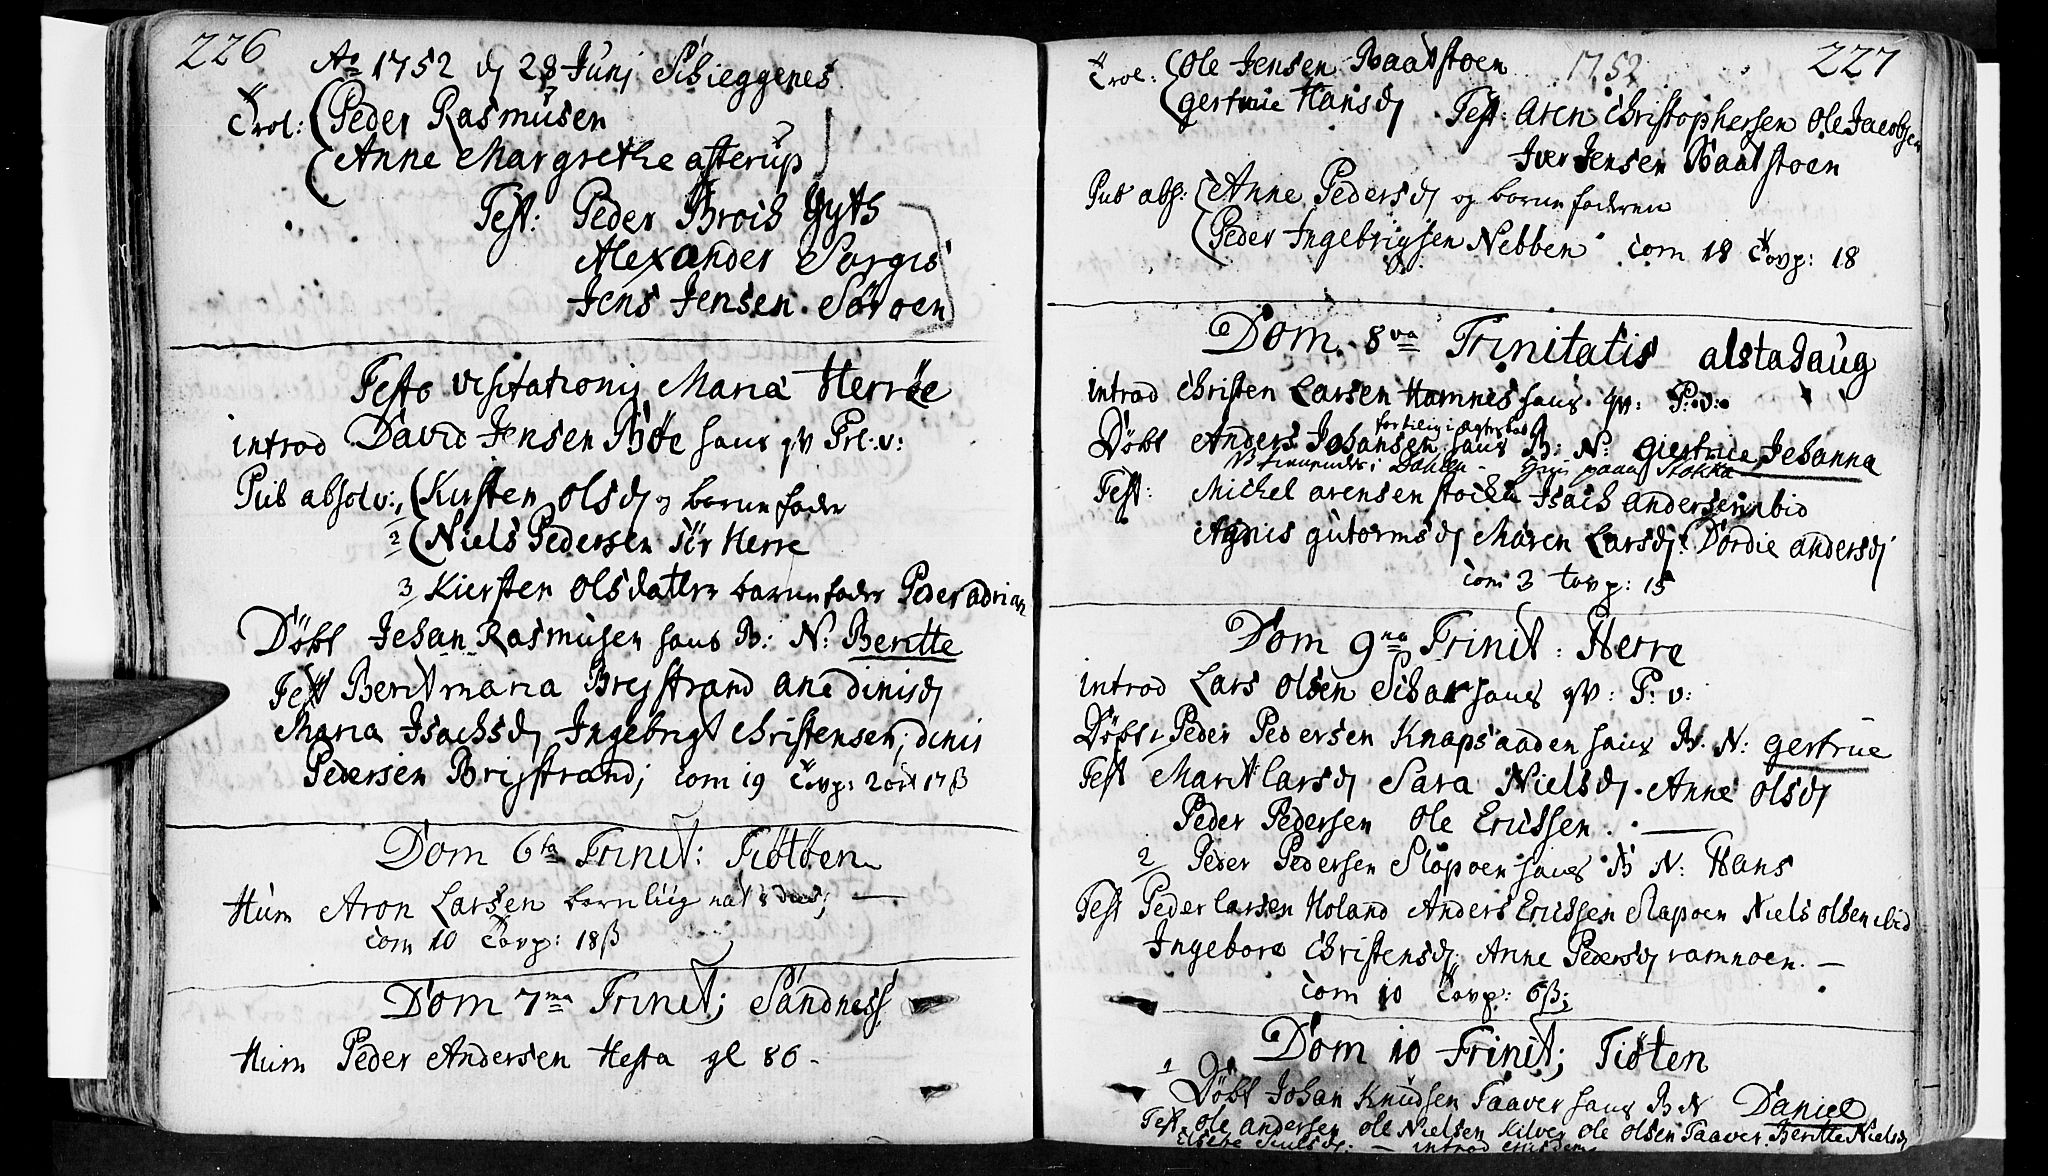 226
Ao 1752 dj 28 Junj Schieggenes
Trol: Peder Rasmusen
Anne Margrethe asterup
Test: Peder Broch Gyth
Alexander Sorgis
Jens Jensen Søroen
Festo visitationis Maria Herrøe
introd David Jensen Bøe hans qv Prl. v:
Pub absolv: 1 Kirsten Olsdj og barnefadr
2 Niels Pedersen Sør Herre
3 Kiersten Olsdatter barnefader Peder adrian
Døbt Johan Rasmusen hans B: N: Beritte
Test Berit maria Brejstrand ane dinisdj
Maria Isachsdj Ingebrigt Christensen, dinis
Pedersen Brijstrand; com 19 Tovp: 2 ort 17 ß
Dom 6ta Trinit: Tiøtøen
Hum Aron Larsen barnliig
com 10 Tovp: 18 ß
Dom 7ma Trinit; Sandness
Hum Peder Andersen Hesta gl 86 -
1752 227
Trol: Ole Jensen Baadstoen
gertrue Hansdj Test: Aren Christophersen Ole Jacobsen
Iver Jensen Baadstoen
Pub abs: Anne Pedersdj og barnefaderen
Peder Ingebrigtsen Nebben com 18 Tovp: 18
Dom. 8va Trinitatis alstahaug
introd Christen Larsen Hamnes hans qv: P: v:
Døbt Anders Johansen hans B: N: Giertrue Johanna
Test: Michel arensen stocka Isach andersen ibid
Agnis gutormsdj Maren Larsdj: Dordie andersdj
com 3 tovp: 15
Dom 9na Trinit: Herrø
introd Lars Olsen Schar hans qv: P: v:
Døbt 1 Peder Pedersen Knapsaaden hans B. N: gertrue
Test Marit larsdj Sara Nielsdj. Anne olsdj
Peder Pedersen Ole Ericssen.
2 Peder Pedersen Slapoen hans B N: Hans
Test Peder larsen Holand Anders Ericssen Slapoen Niels olsen ibid
Ingebore Christensdj Anne Pedersdj ramnoen. -
com 10 Tovp: 6 ß;
Dom 10 Trinit; Tiøten
1 Døbt Johan Knudsen Taaver hans B N Daniel
Test Ole andersen Ole Nielsen Kilven Ole Olsen Taaver Beritte Nielsdj